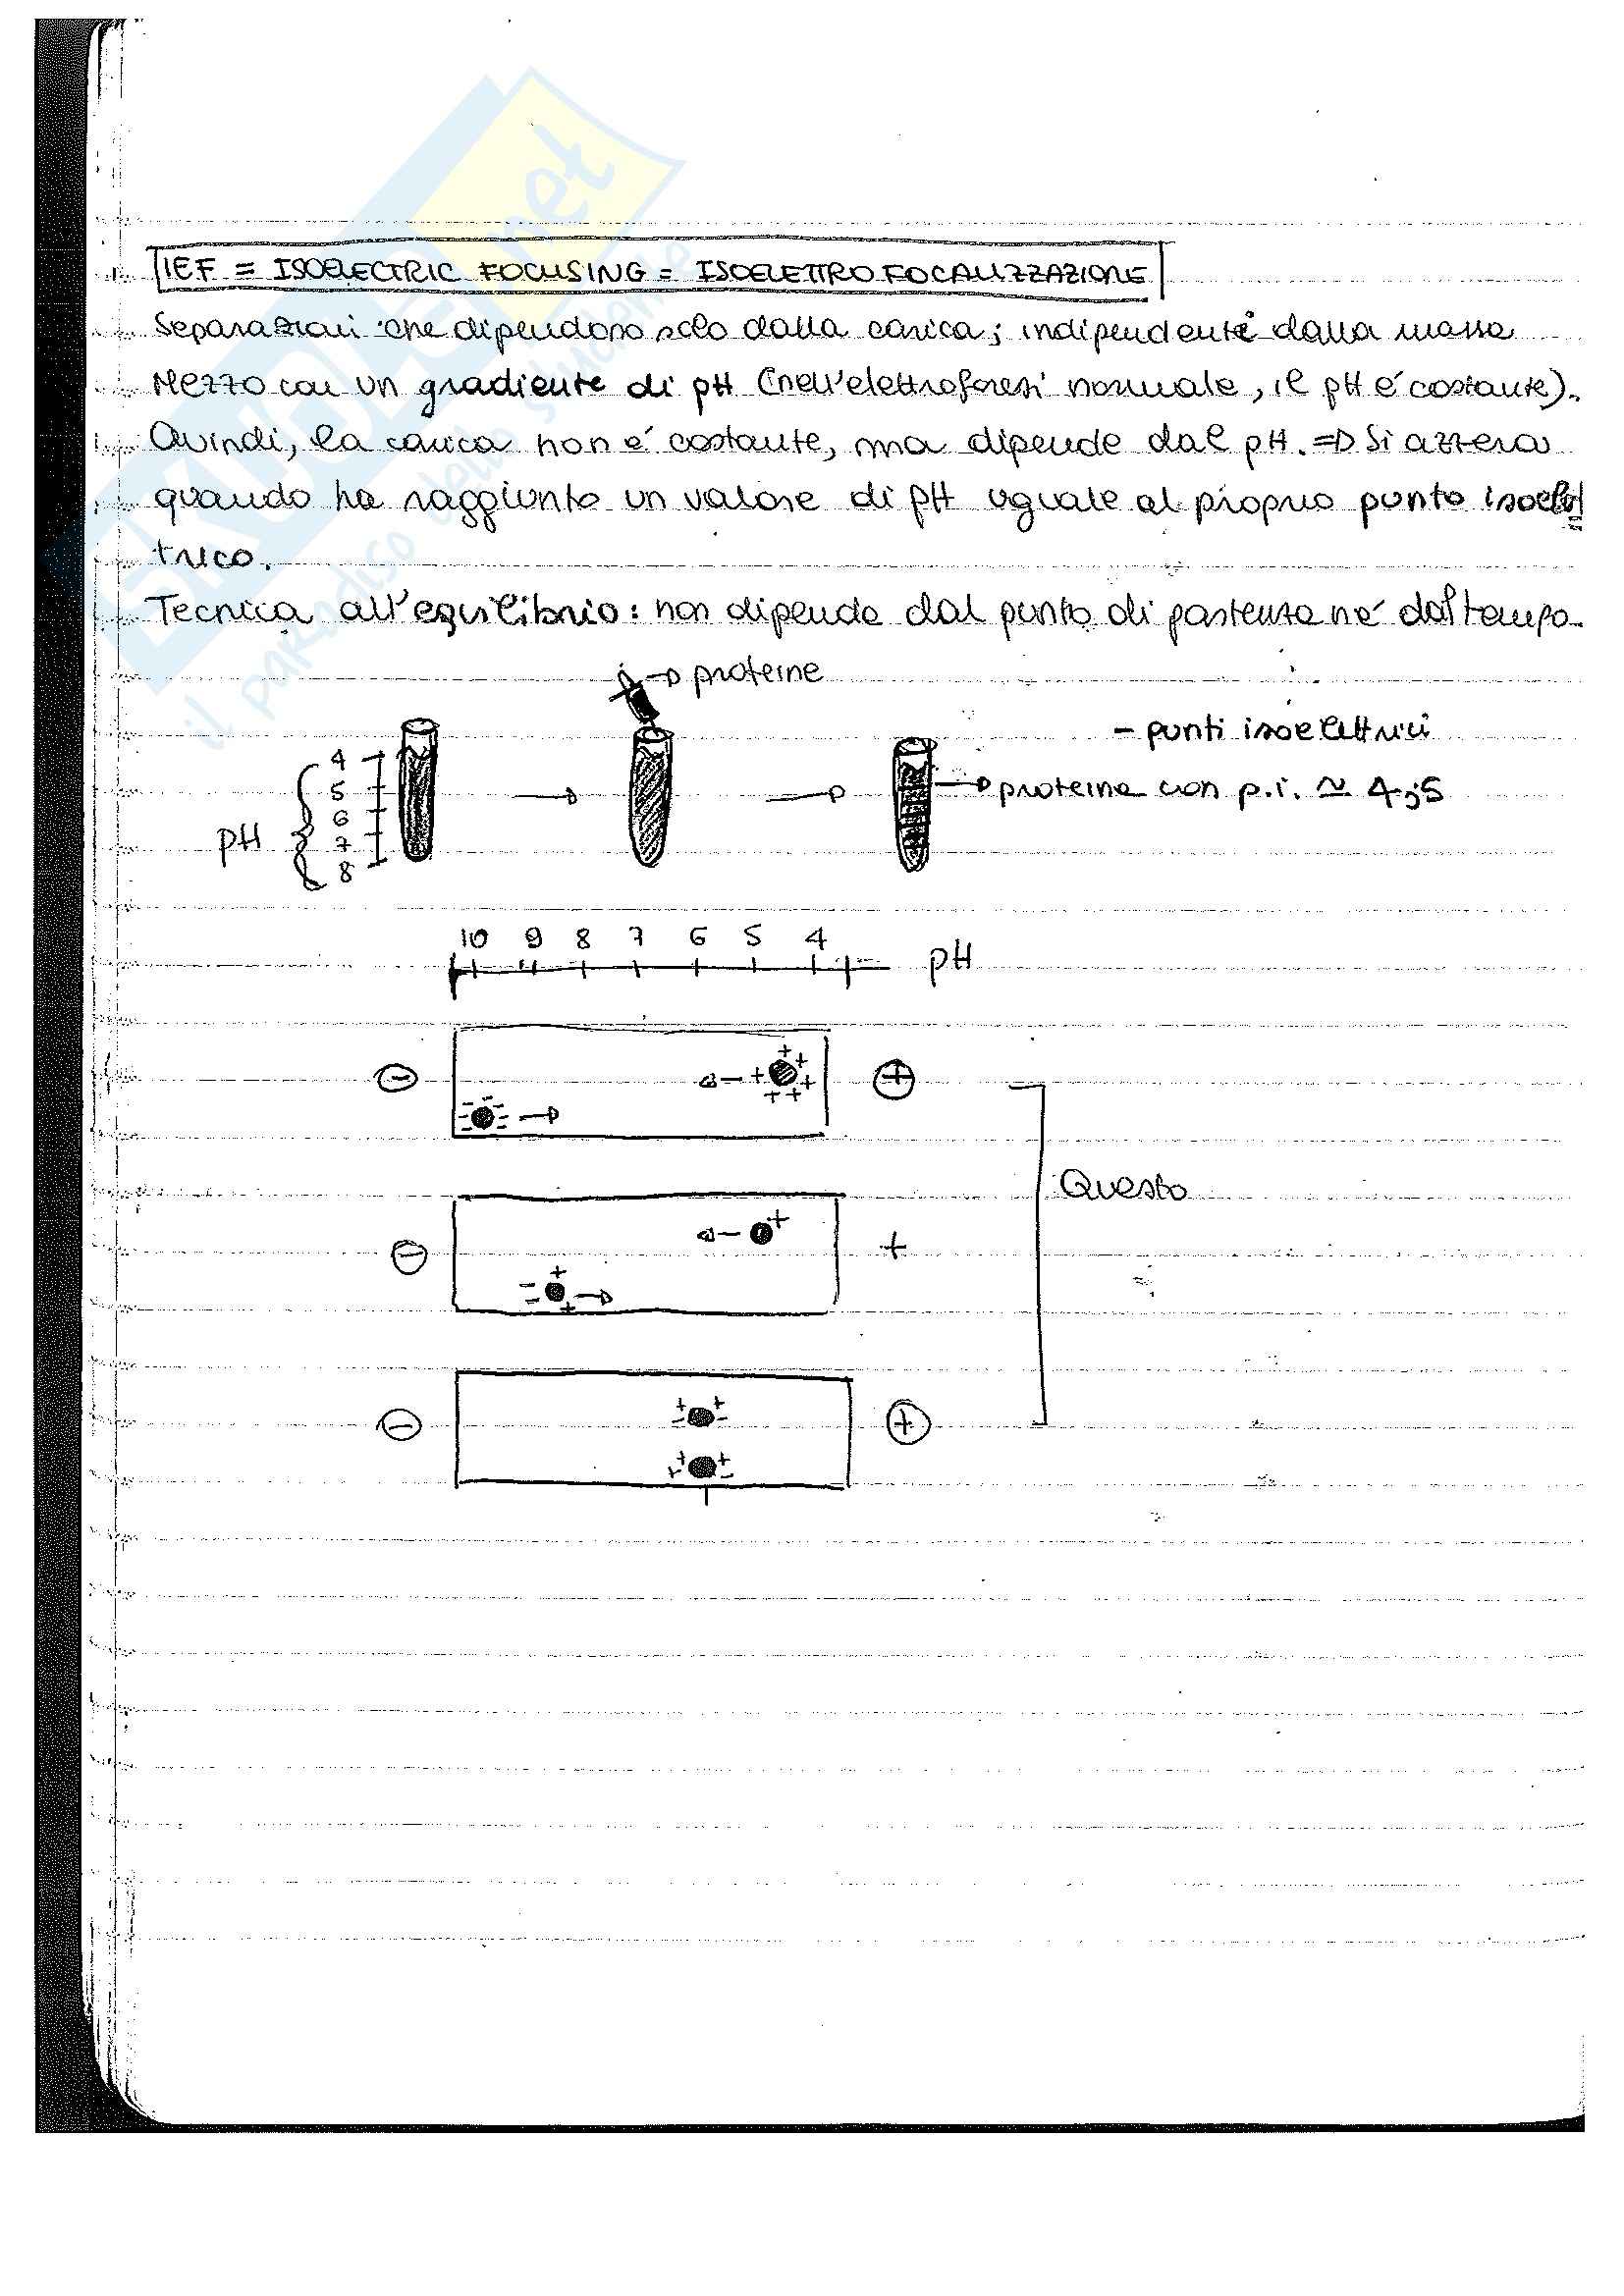 IEF = ISOELECTRIC FOCUSING = ISOELETTROFOCALIZZAZIONE
Separazioni che dipendono solo dalla carica; indipendenti dalla massa
Mezzo con un gradiente di pH (nell'elettroforesi normale, il pH é costante).
Quindi, la carica non é costante, ma dipende dal pH. => Si azzera
quando ha raggiunto un valore di pH uguale al proprio punto isoelet
trico.
Tecnica all'equilibrio: non dipende dal punto di partenza né dal tempo.
→ proteine
- punti isoelettrici
4
5
6
7
8
pH
→ proteina con p.i. ≃ 4,5
10 9 8 7 6 5 4 pH
Questo
SKUOLA.net
il paradiso dello studente